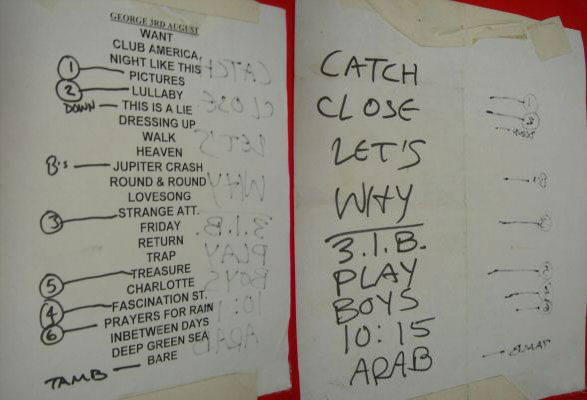 GEORGE 3RD AUGUST
WANT
CLUB AMERICA,
NIGHT LIKE THIS
1 PICTURES
2 LULLABY
DOWN THIS IS A LIE
DRESSING UP
WALK
HEAVEN
B's JUPITER CRASH
ROUND & ROUND
LOVESONG
3 STRANGE ATT.
FRIDAY
RETURN
TRAP
5 TREASURE
CHARLOTTE
4 FASCINATION ST.
6 PRAYERS FOR RAIN
INBETWEEN DAYS
DEEP GREEN SEA
TAMB BARE
CATCH
CLOSE
LET'S
WHY
3.I.B.
PLAY
BOYS
10:15
ARAB